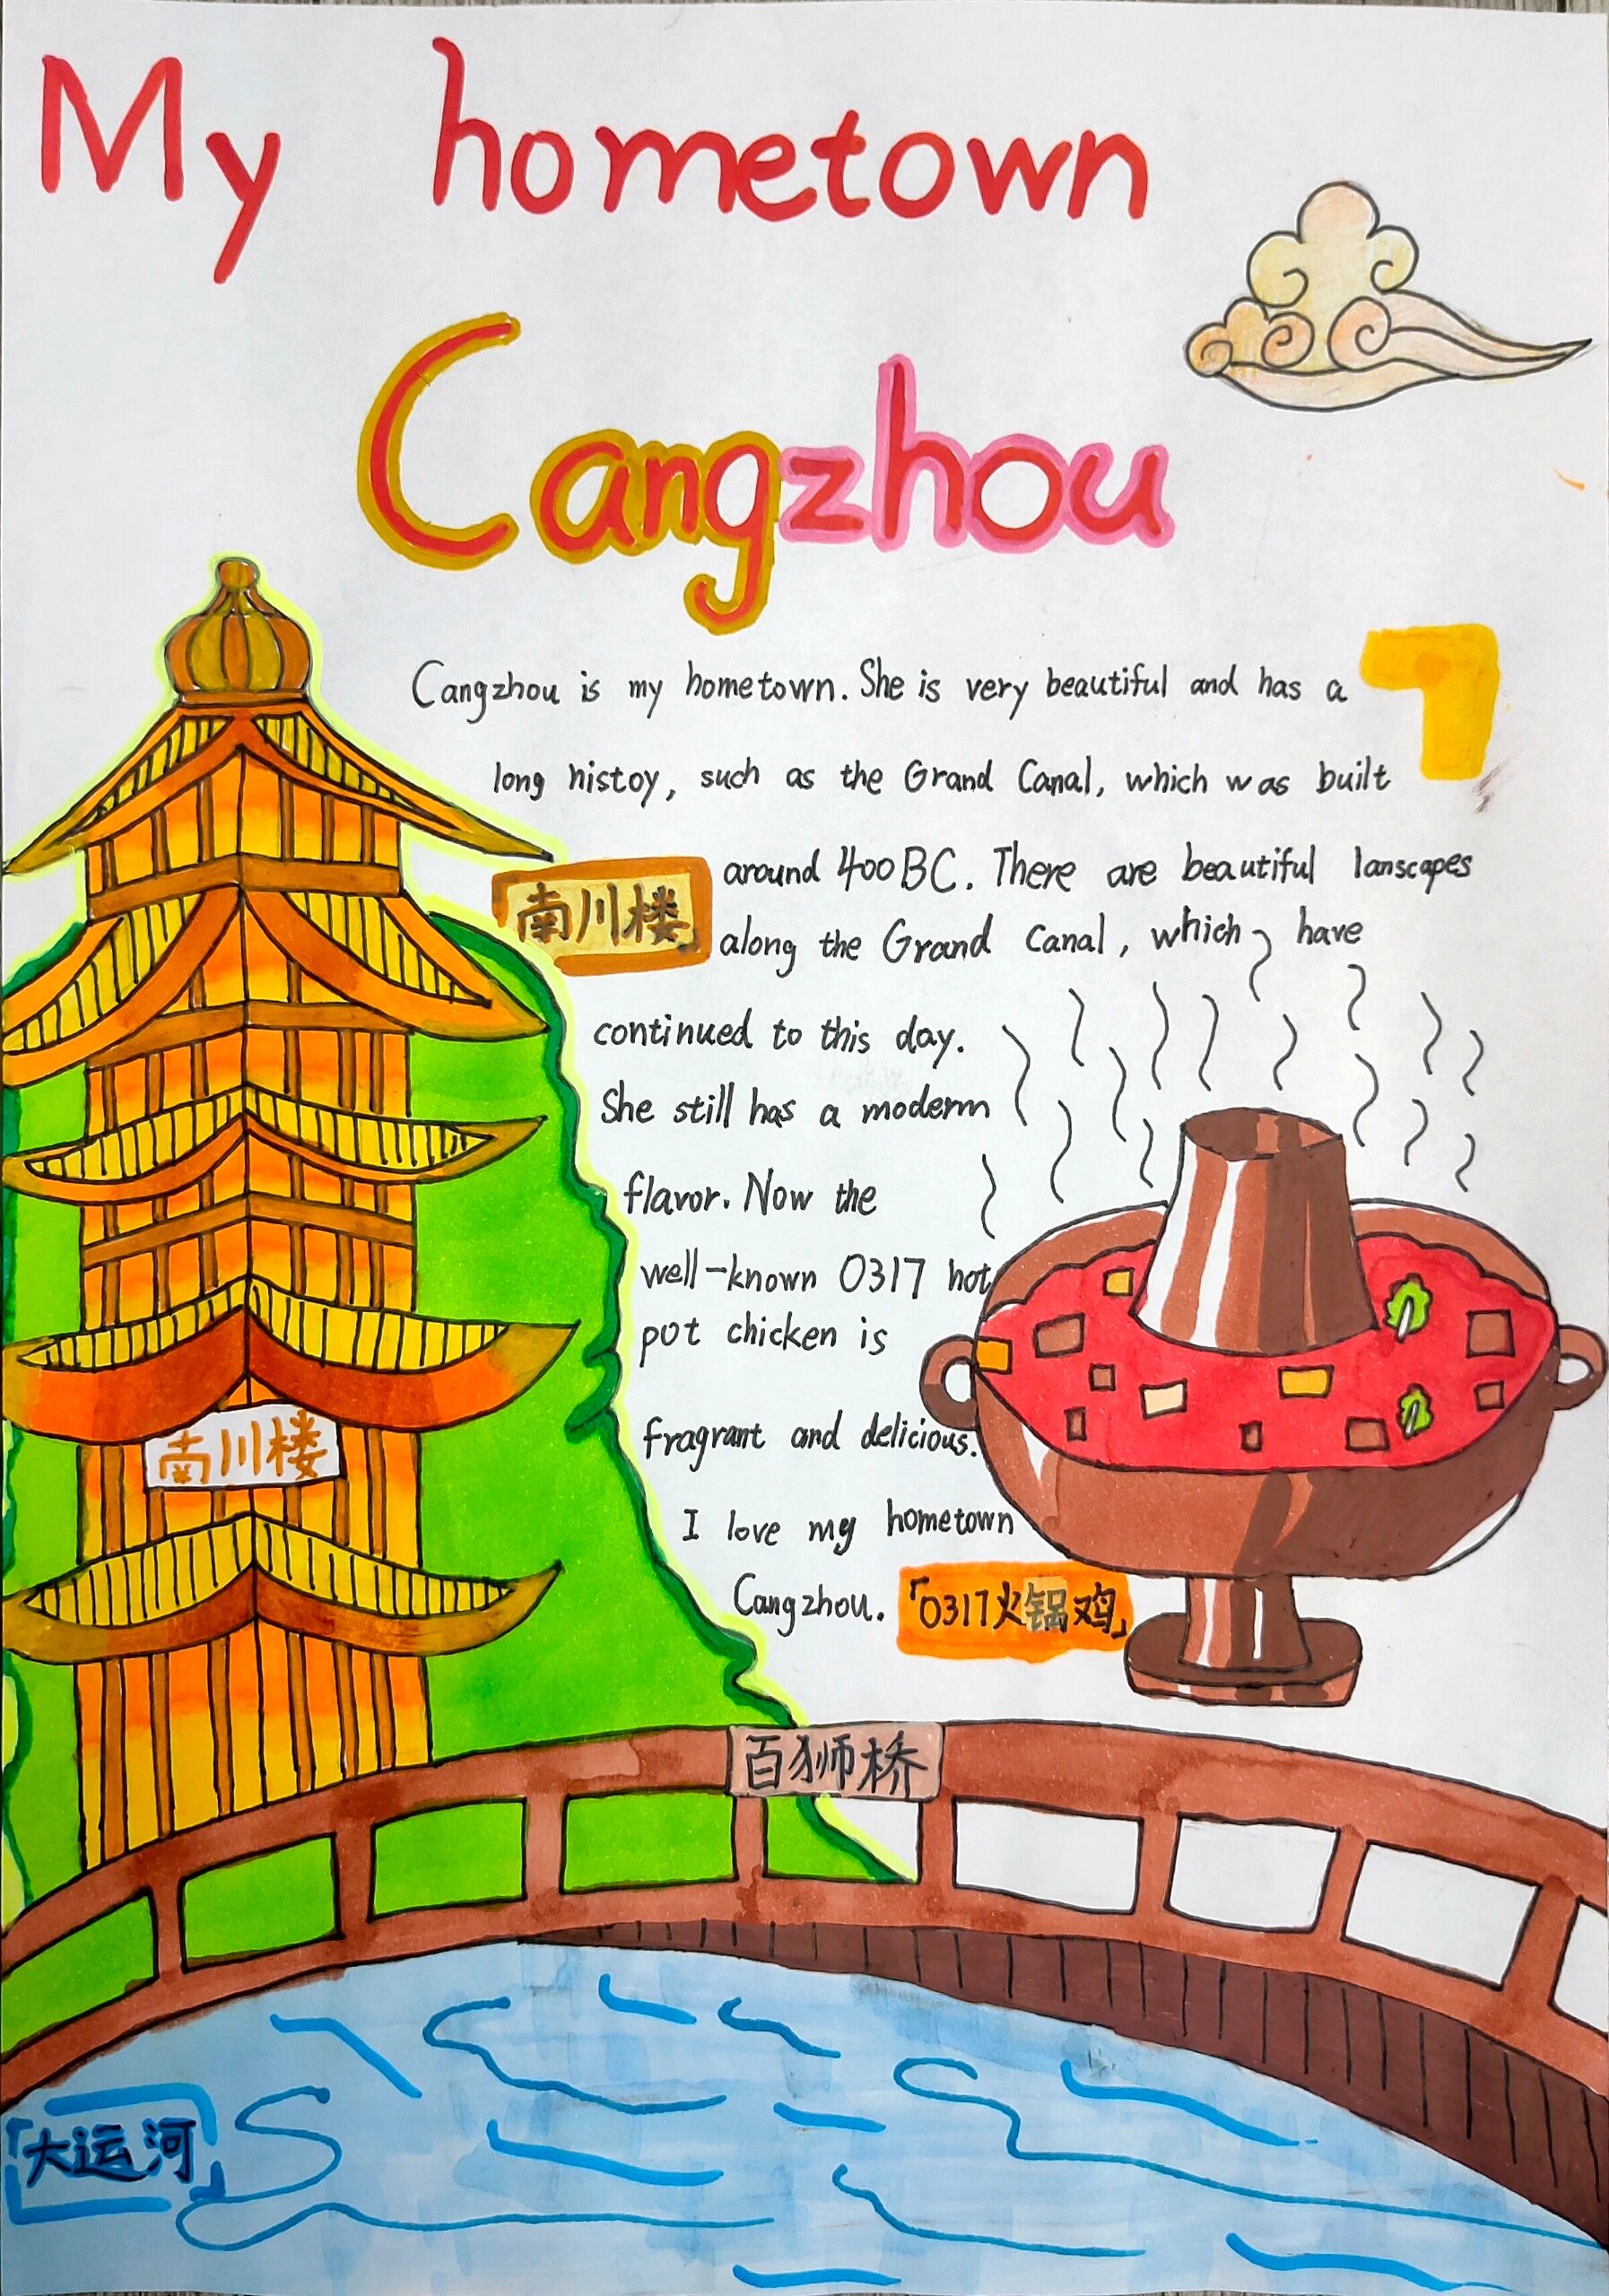 My hometown
Cangzhou
Cangzhou is my hometown. She is very beautiful and has a
long histoy, such as the Grand Canal, which was built
around 400BC. There are beautiful lanscapes
南川楼
along the Grand Canal, which have
continued to this day.
She still has a moderm
flavor. Now the
well-known 0317 hot
pot chicken is
fragrant and delicious.
I love my hometown
Cangzhou.
「0317火锅鸡」
南川楼
百狮桥
「大运河」